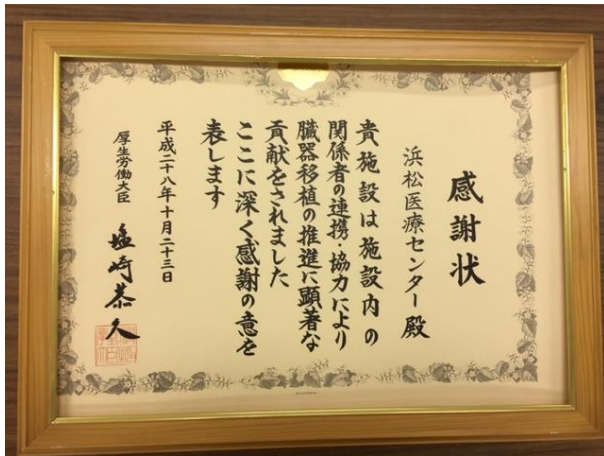 感謝状
浜松医療センター殿
貴施設は施設内の
関係者の連携・協力により
臓器移植の推進に顕著な
貢献をされました
ここに深く感謝の意を
表します
平成二十八年十月二十三日
厚生労働大臣 塩崎恭久